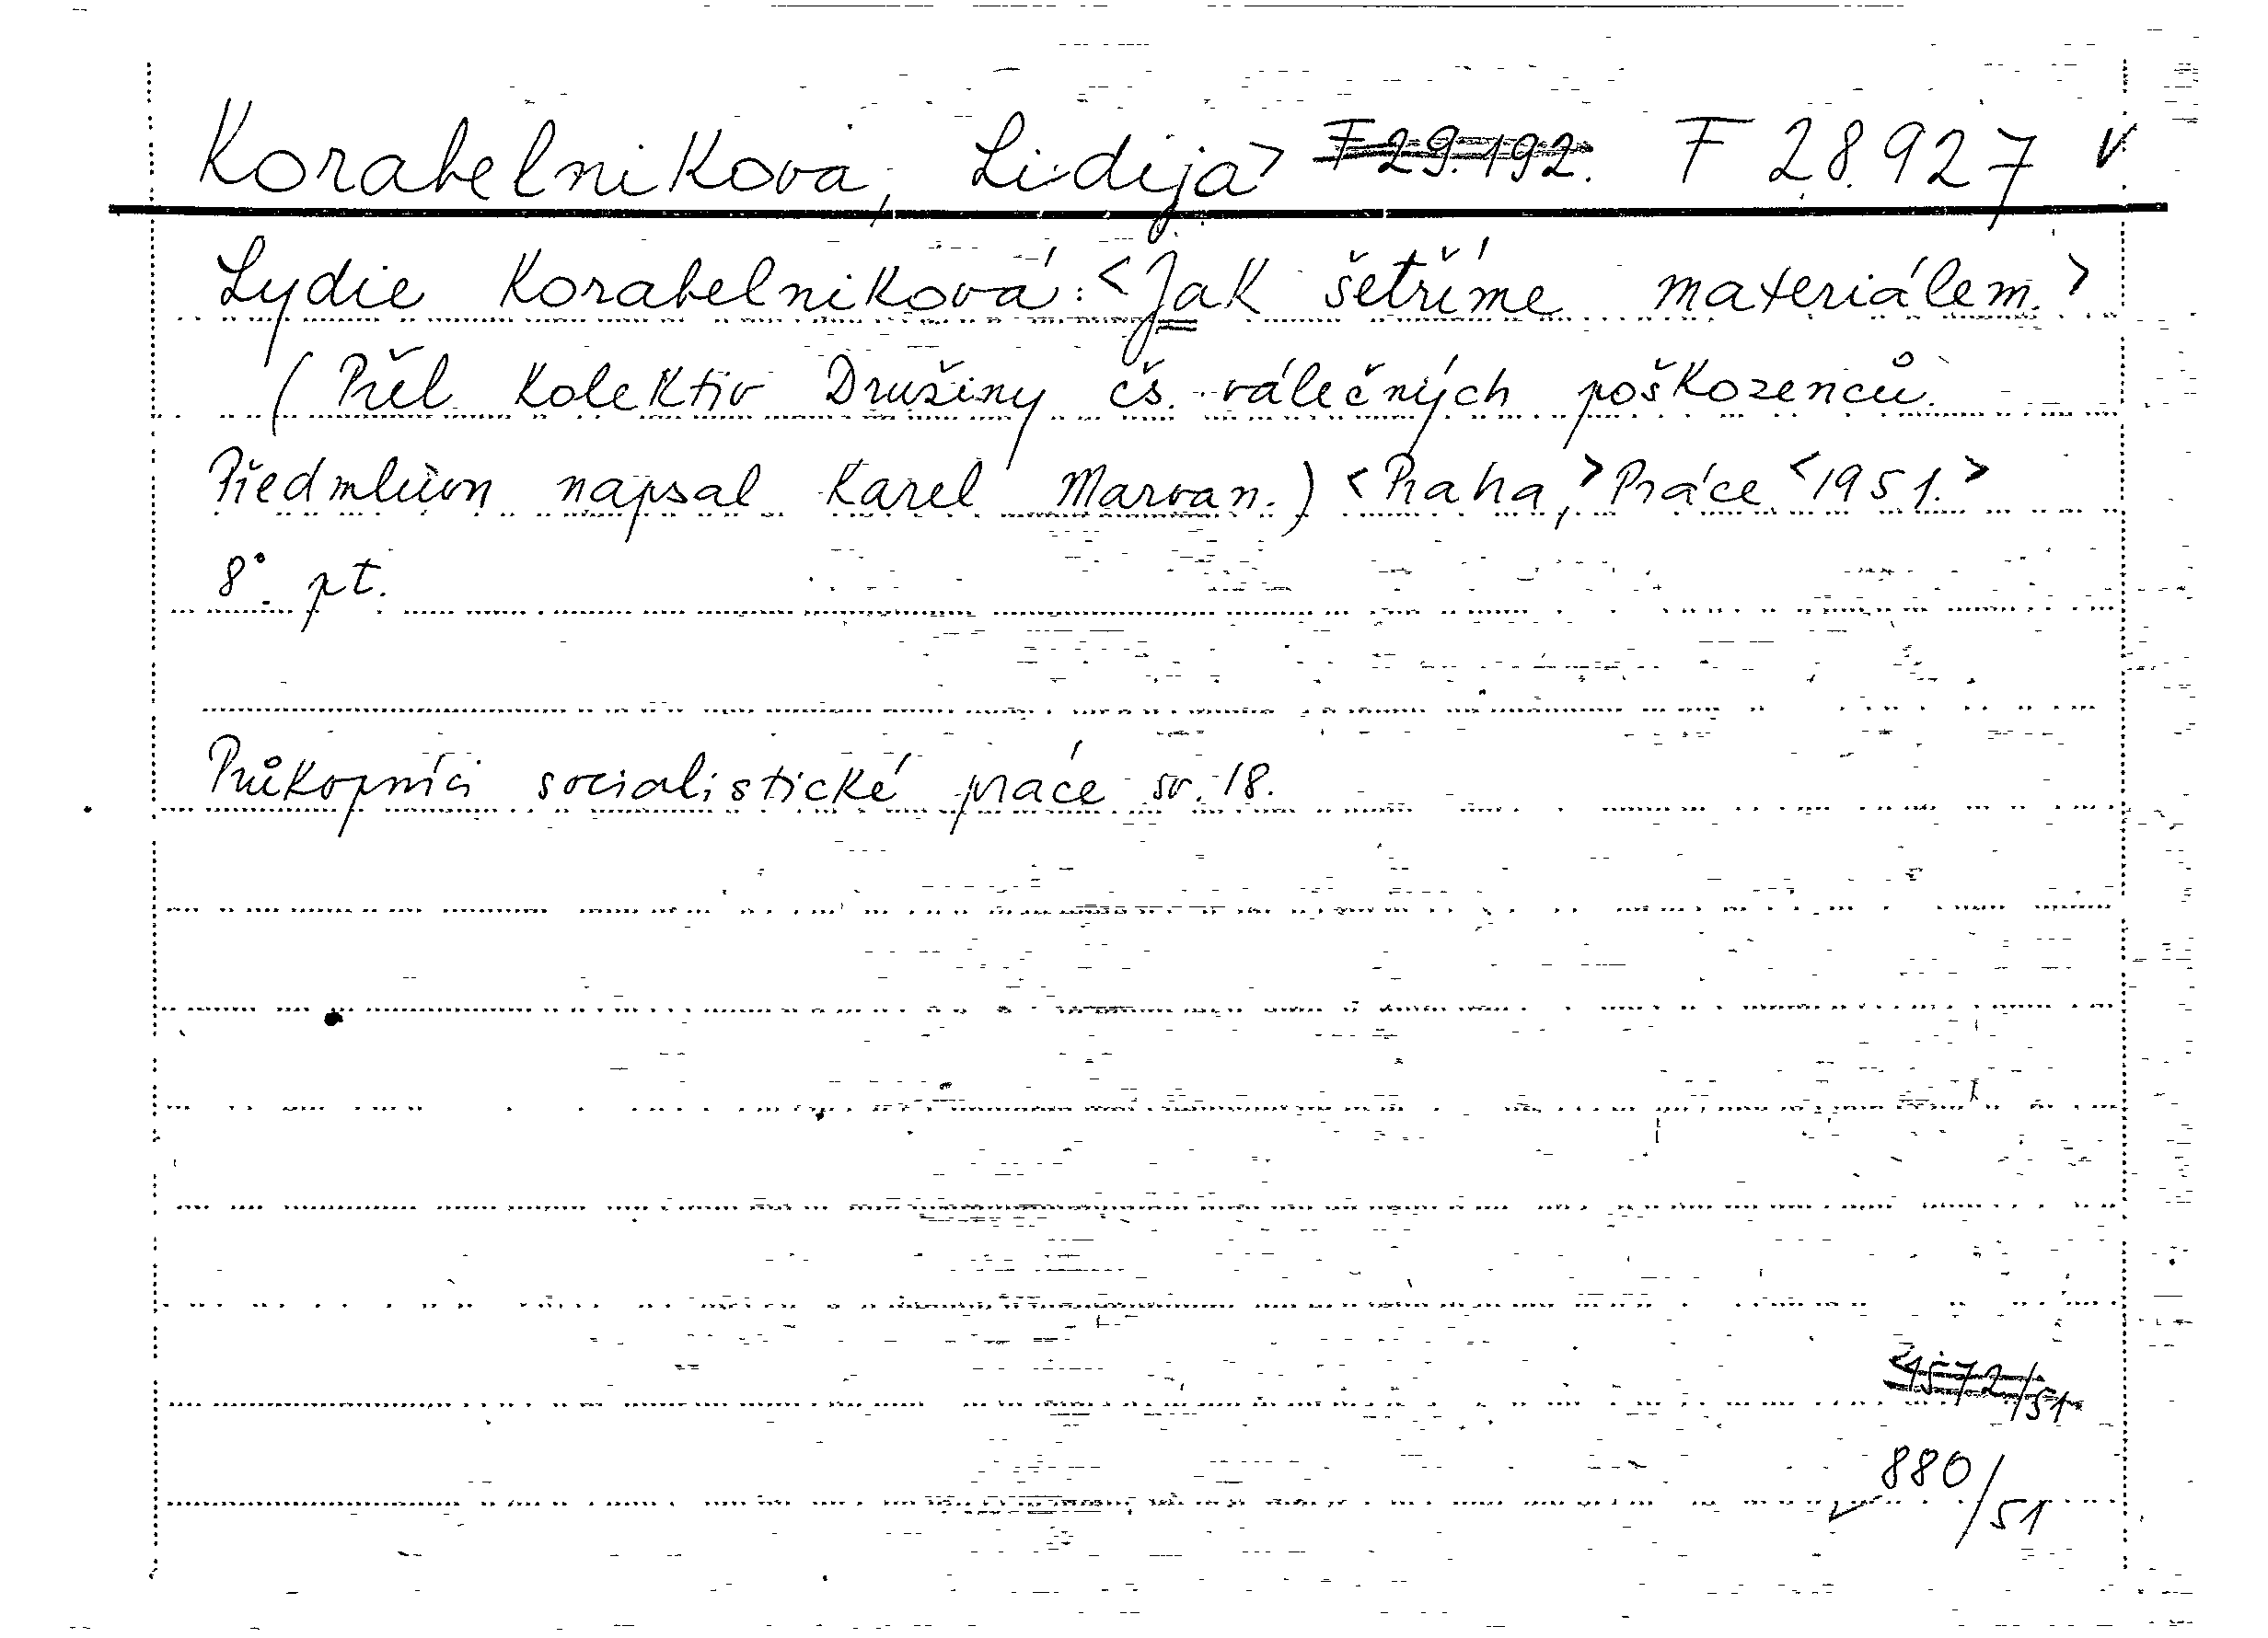 Korabelnikova, Lidija> F 29.192. F 28.927 v
Lydie Korabelniková: <Jak šetříme materiálem.>
(Přel. Kolektiv Družiny čs. válečných poškozenců.
Předmluvu napsal Karel Marvan.) <Praha,> Práce <1951.>
8°. pt.
Průkopníci socialistické práce sv. 18.
880/51